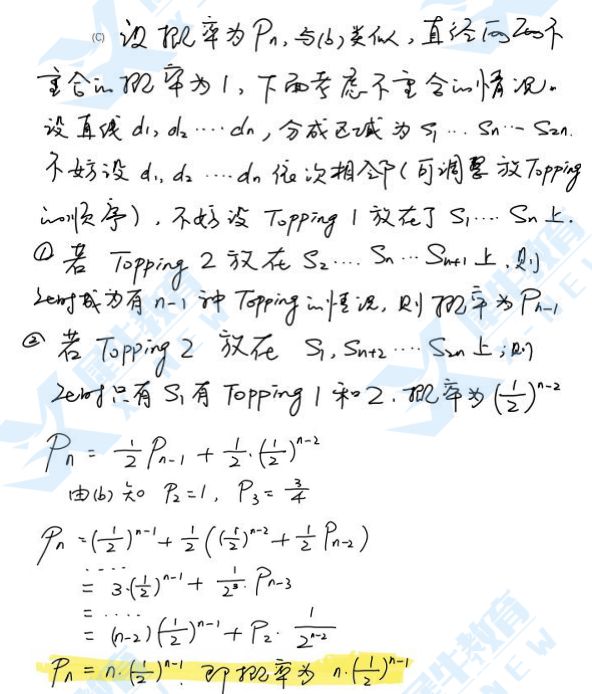 (C) 设概率为Pn,与(b)类似,直径间互不
重合的概率为1,下面考虑不重合的情况.
设直线d1,d2 ···· dn,分成区域为S1 ·· Sn ·· S2n.
不妨设d1,d2 ···· dn依次相邻(可调整放Topping
的顺序),不妨设Topping 1放在了S1 ···· Sn上.
① 若Topping 2放在S2 ···· Sn ·· Sn+1上,则
此时成为有n-1种Topping的情况,则概率为Pn-1
② 若Topping 2 放在 S1, Sn+2 ···· S2n上,则
此时只有S1有Topping 1和2.概率为(1/2)^{n-2}
Pn = 1/2 Pn-1 + 1/2·(1/2)^{n-2}
由(b)知 P2=1, P3=3/4
Pn =(1/2)^{n-1} + 1/2((1/2)^{n-2} + 1/2 Pn-2)
····
= 3·(1/2)^{n-1} + 1/2^3 · Pn-3
= ····
= (n-2)(1/2)^{n-1} + P2 · 1/2^{n-2}
Pn = n·(1/2)^{n-1}. 即概率为 n·(1/2)^{n-1}
犀牛教育